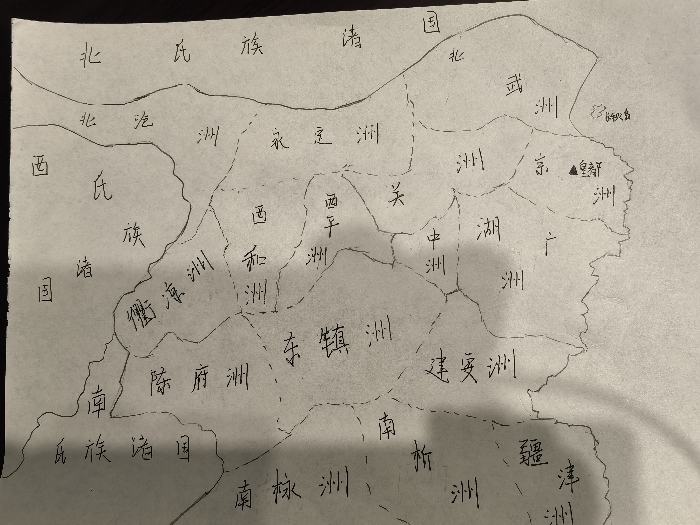 北氏族渚国
北武洲
北沧洲
永定洲
关洲
京洲
皇都
西氏族渚国
西和洲
西平洲
中洲
湖广洲
衢凉洲
陈府洲
东镇洲
建安洲
南氏族渚国
南栐洲
南析洲
疆津洲